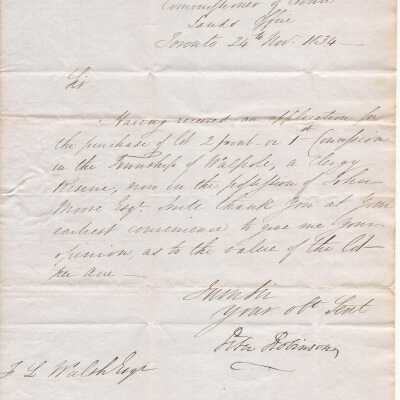 Commissioner of Crown
Lands Office
Toronto 24th Novr. 1834
Sir
Having received an application for
the purchase of Lot 2 point or 1st Concession
in the Township of Walpole, a Clergy
Reserve, now in the possession of John
Moore Esqr. I will thank you at your
earliest convenience to give me your
opinion, as to the value of the Lot
per acre
I am Sir
Your obt Servt
Peter Robinson
F L Walsh Esqr